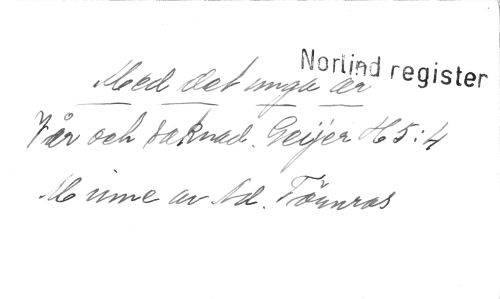 Norlind register
Med det unga år
Vår och saknad. Geijer H5:4
Minne av Ad. Törnros